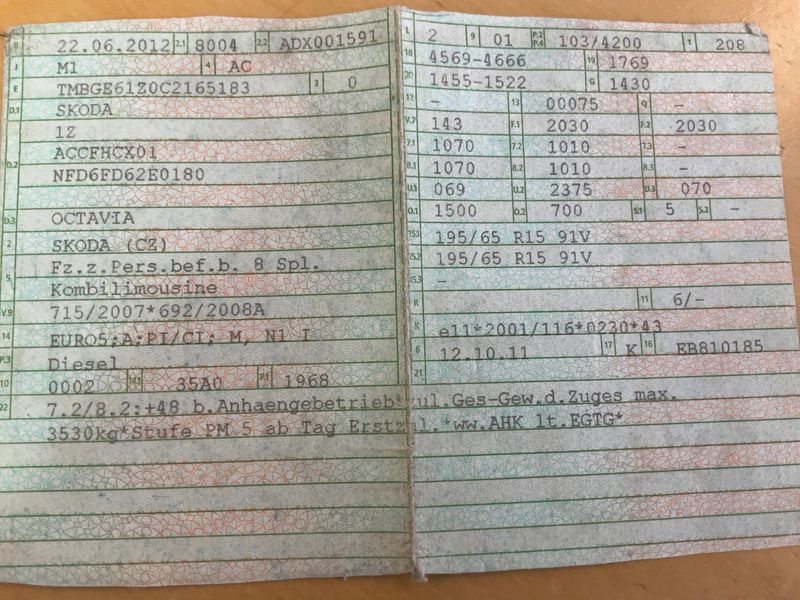 B 22.06.2012 2.1 8004 2.2 ADX001591
J M1 4 AC
E TMBGE61Z0C2165183 3 0
D.1 SKODA
1Z
D.2 ACCFHCX01
NFD6FD62E0180
D.3 OCTAVIA
2 SKODA (CZ)
5 Fz.z.Pers.bef.b. 8 Spl.
Kombilimousine
V.9 715/2007*692/2008A
14 EURO5;A;PI/CI; M, N1 I
P.3 Diesel
10 0002 14.1 35A0 P.1 1968
L 2 9 01 P.2 P.4 103/4200 T 208
18 4569-4666 19 1769
20 1455-1522 G 1430
12 - 13 00075 Q -
V.7 143 F.1 2030 F.2 2030
7.1 1070 7.2 1010 7.3 -
8.1 1070 8.2 1010 8.3 -
U.1 069 U.2 2375 U.3 070
O.1 1500 O.2 700 S.1 5 S.2 -
15.1 195/65 R15 91V
15.2 195/65 R15 91V
15.3 -
R 11 6/-
K e11*2001/116*0230*43
6 12.10.11 17 K 16 EB810185
21
22 7.2/8.2:+48 b.Anhaengebetrieb*zul.Ges-Gew.d.Zuges max.
3530kg*Stufe PM 5 ab Tag Erstzul.*ww.AHK lt.EGTG*